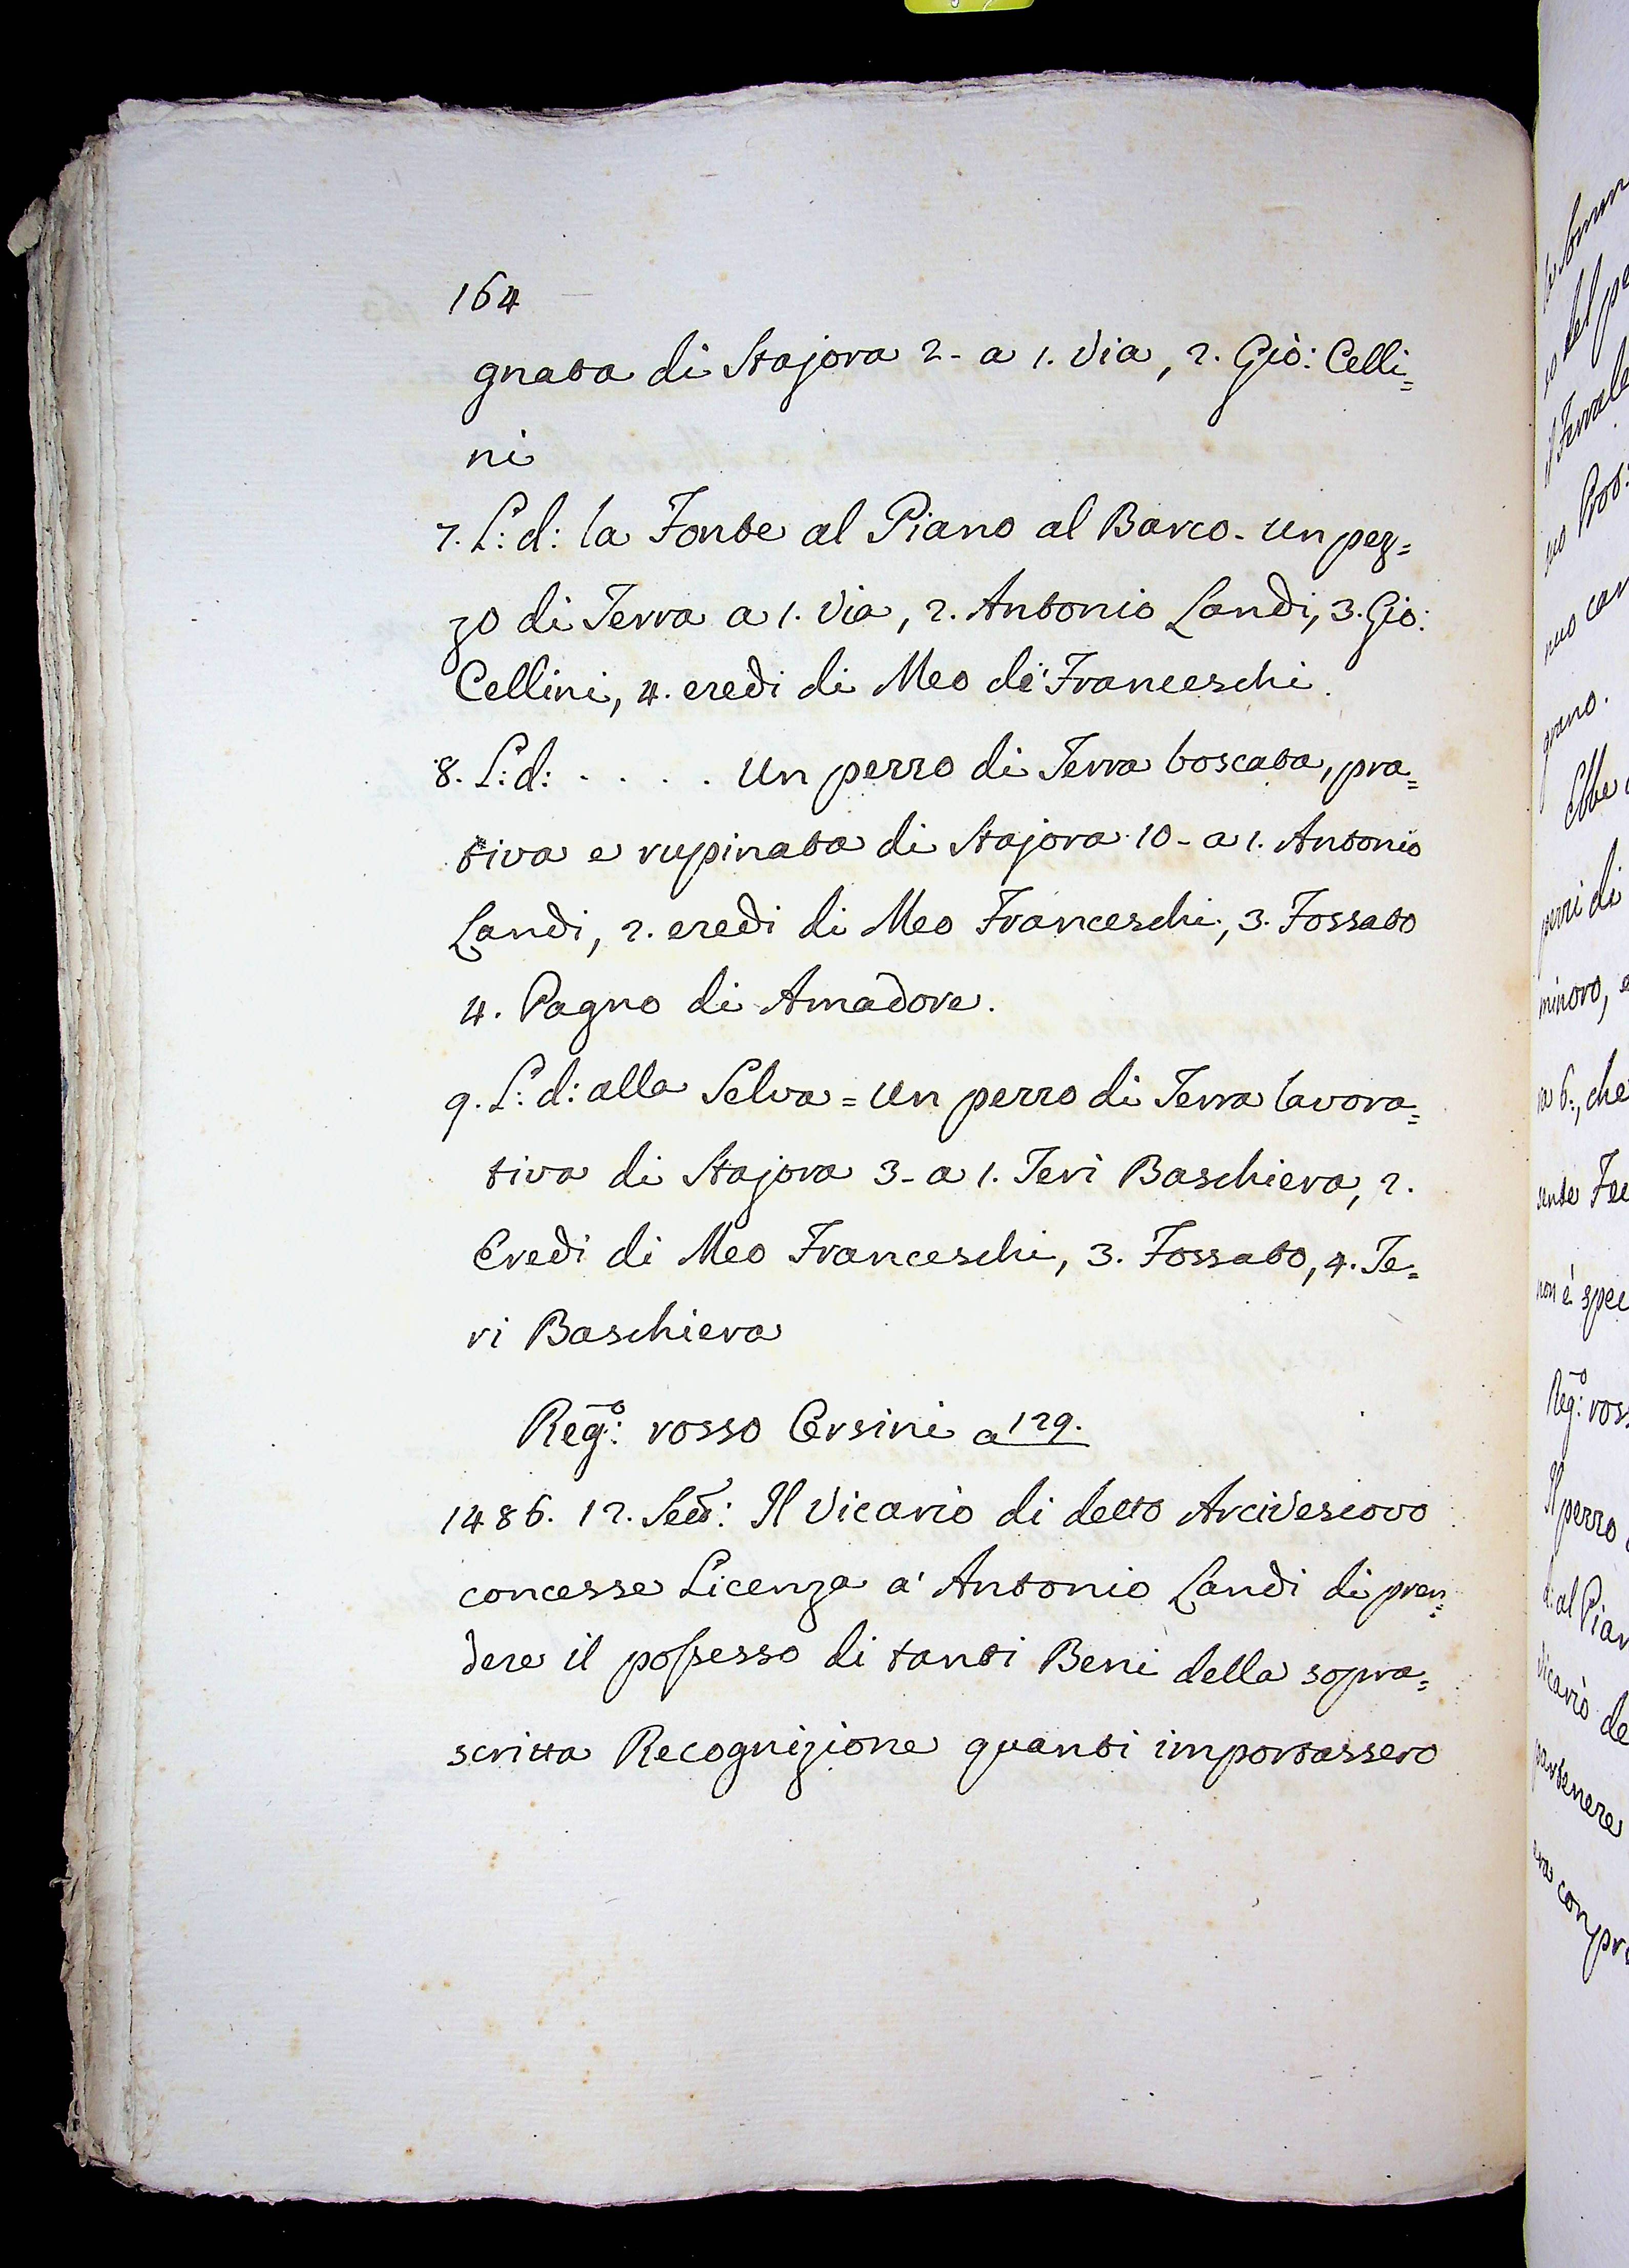 164
gnata di Stajora 2 - a 1. Via, 2. Giò: Celli=
ni
7. L: d: la Fonte al Piano al Barco - un pez=
zo di Terra a 1. Via, 2. Antonio Landi, 3. Gio:
Cellini, 4. eredi di Meo de' Franceschi.
8. L: d: . . . . Un pezzo di Terra boscata, pra=
tiva e rupinata di Stajora 10 - a 1. Antonio
Landi, 2. eredi di Meo Franceschi, 3. Fossato
4. Pagno di Amadore.
9. L: d: alla Selva = Un pezzo di Terra lavora=
tiva di Stajora 3 - a 1. Teri Baschiera, 2.
Eredi di Meo Franceschi, 3. Fossato, 4. Te=
ri Baschiera
Reg:º rosso Ersini a 129.
1486. 12. Sett: Il Vicario di detto Arcivescovo
concesse Licenza a' Antonio Landi di pren=
dere il possesso di tanti Beni della sopra=
scritta Recognizione quanti importassero
del pe
il Terrale
nuo can
grano.
Ebbe
pezzi di
minoro, e
ra 6:, che
sente Fe
non è spec
Reg:º ross
Il pezzo
d: al Pian
Vicario de
partenere
era con pr